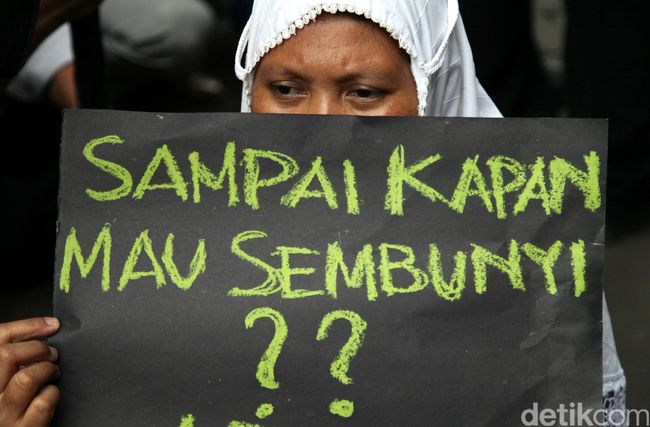 SAMPAI KAPAN
MAU SEMBUNYI
??
detikcom